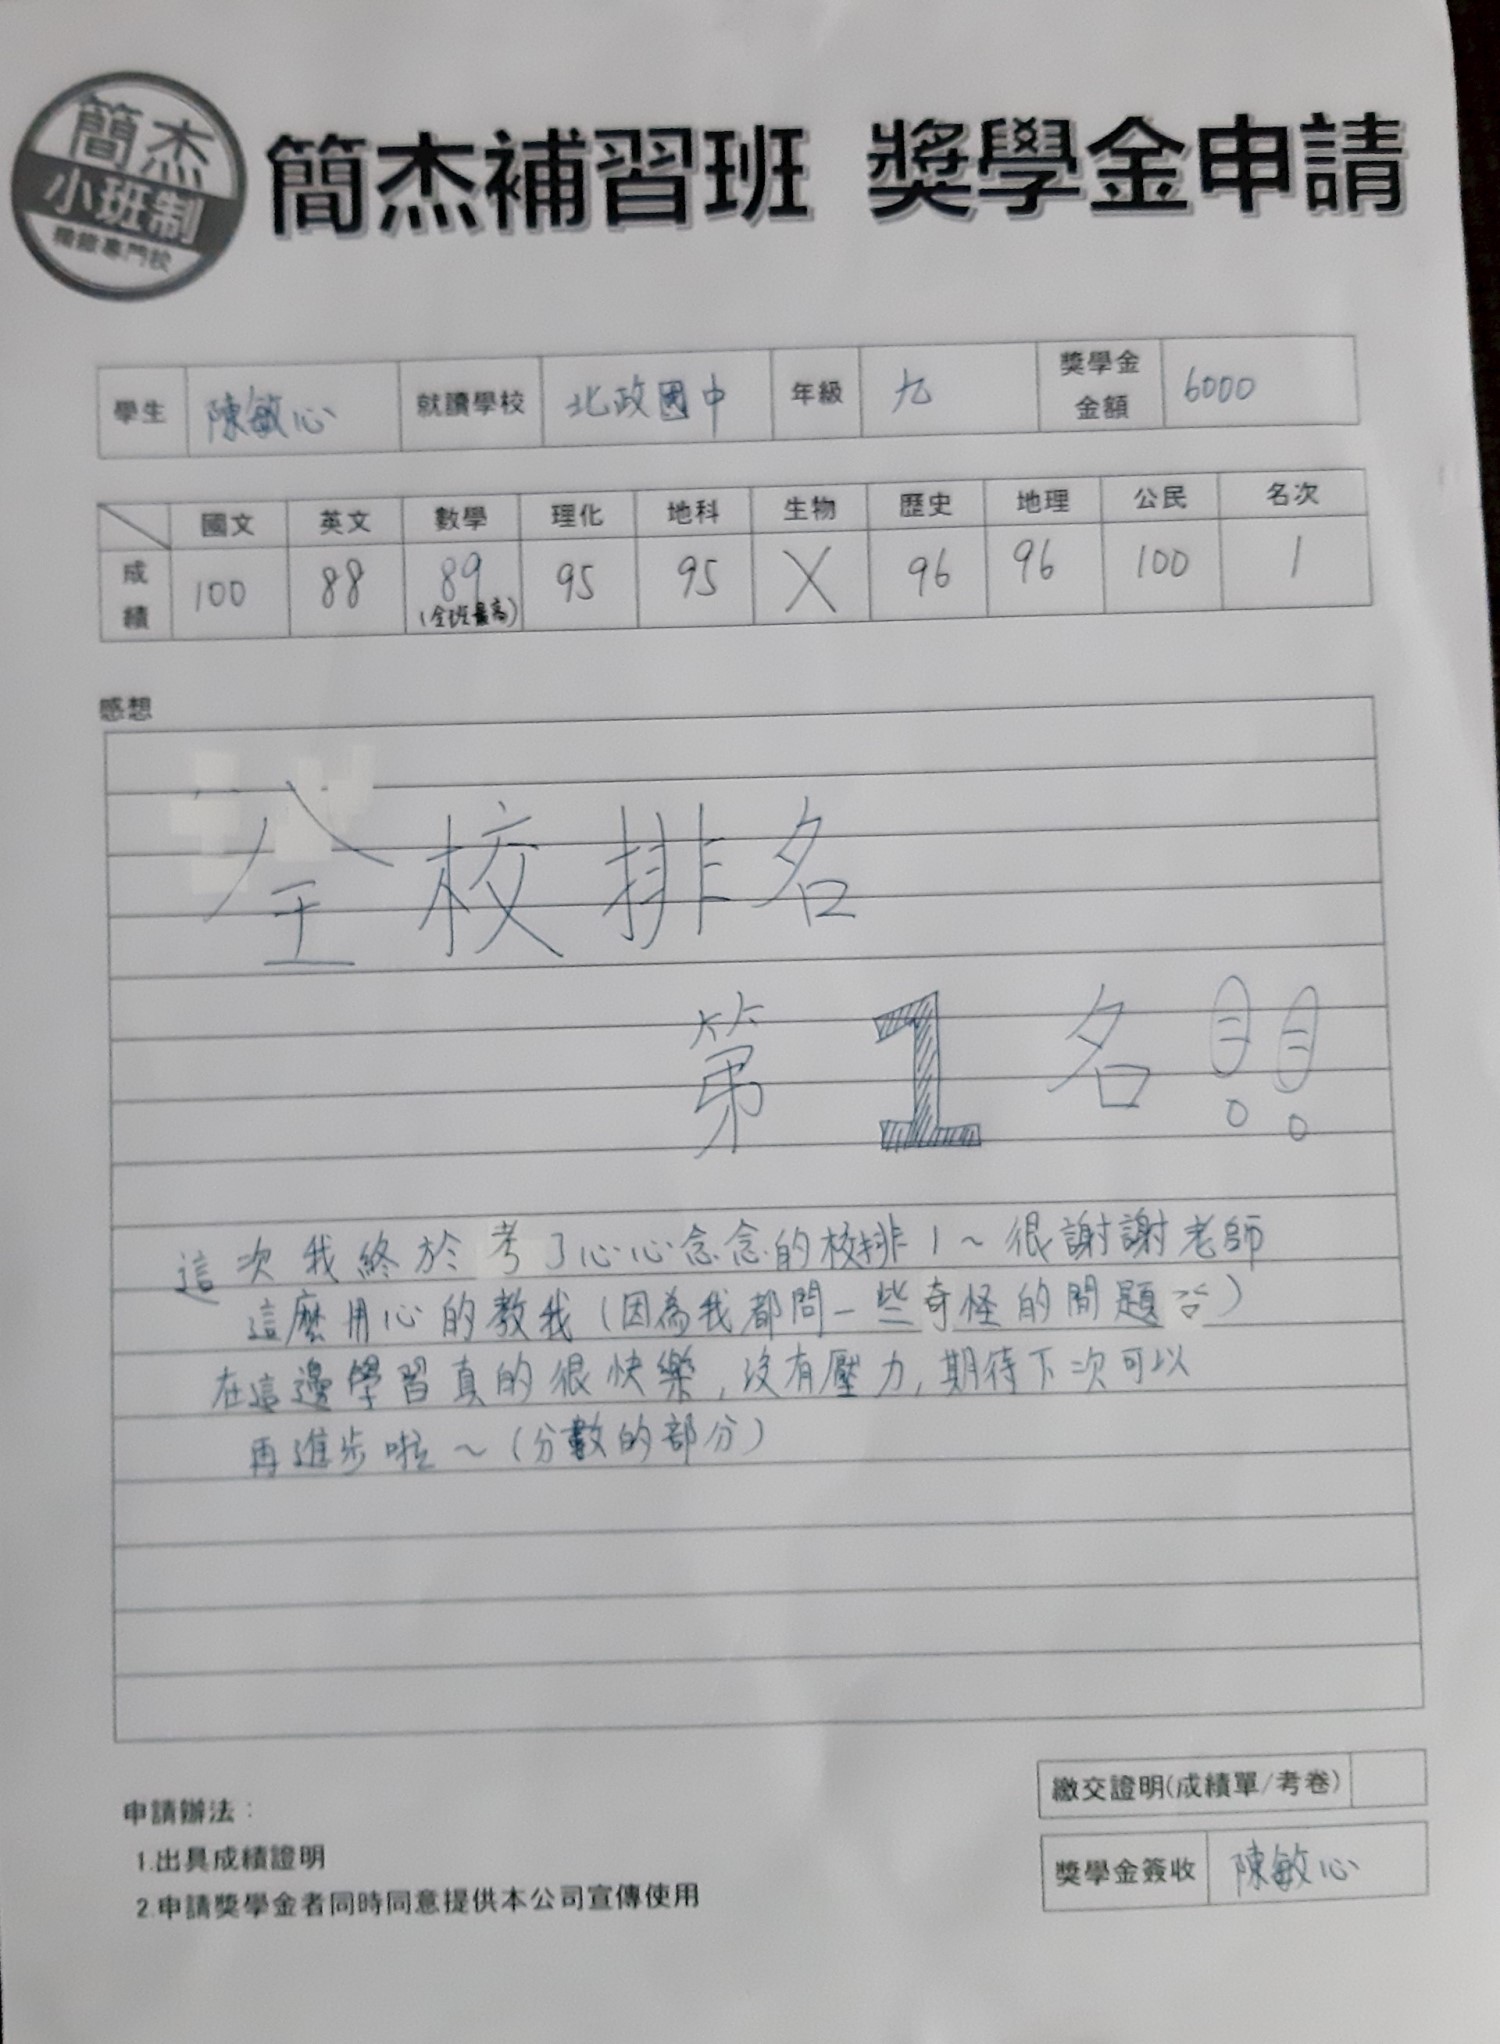 簡杰
小班制
簡杰補習班 獎學金申請
學生 陳敏心 就讀學校 北政國中 年級 九 獎學金金額 6000
國文 英文 數學 理化 地科 生物 歷史 地理 公民 名次
成績 100 88 89 95 95 X 96 96 100 1
(全班最高)
感想
全校排名
第1名!!
這次我終於考了心心念念的校排1~很謝謝老師
這麼用心的教我(因為我都問一些奇怪的問題 )
在這邊學習真的很快樂,沒有壓力,期待下次可以
再進步啦~(分數的部分)
繳交證明(成績單/考卷)
申請辦法:
1.出具成績證明
獎學金簽收 陳敏心
2.申請獎學金者同時同意提供本公司宣傳使用